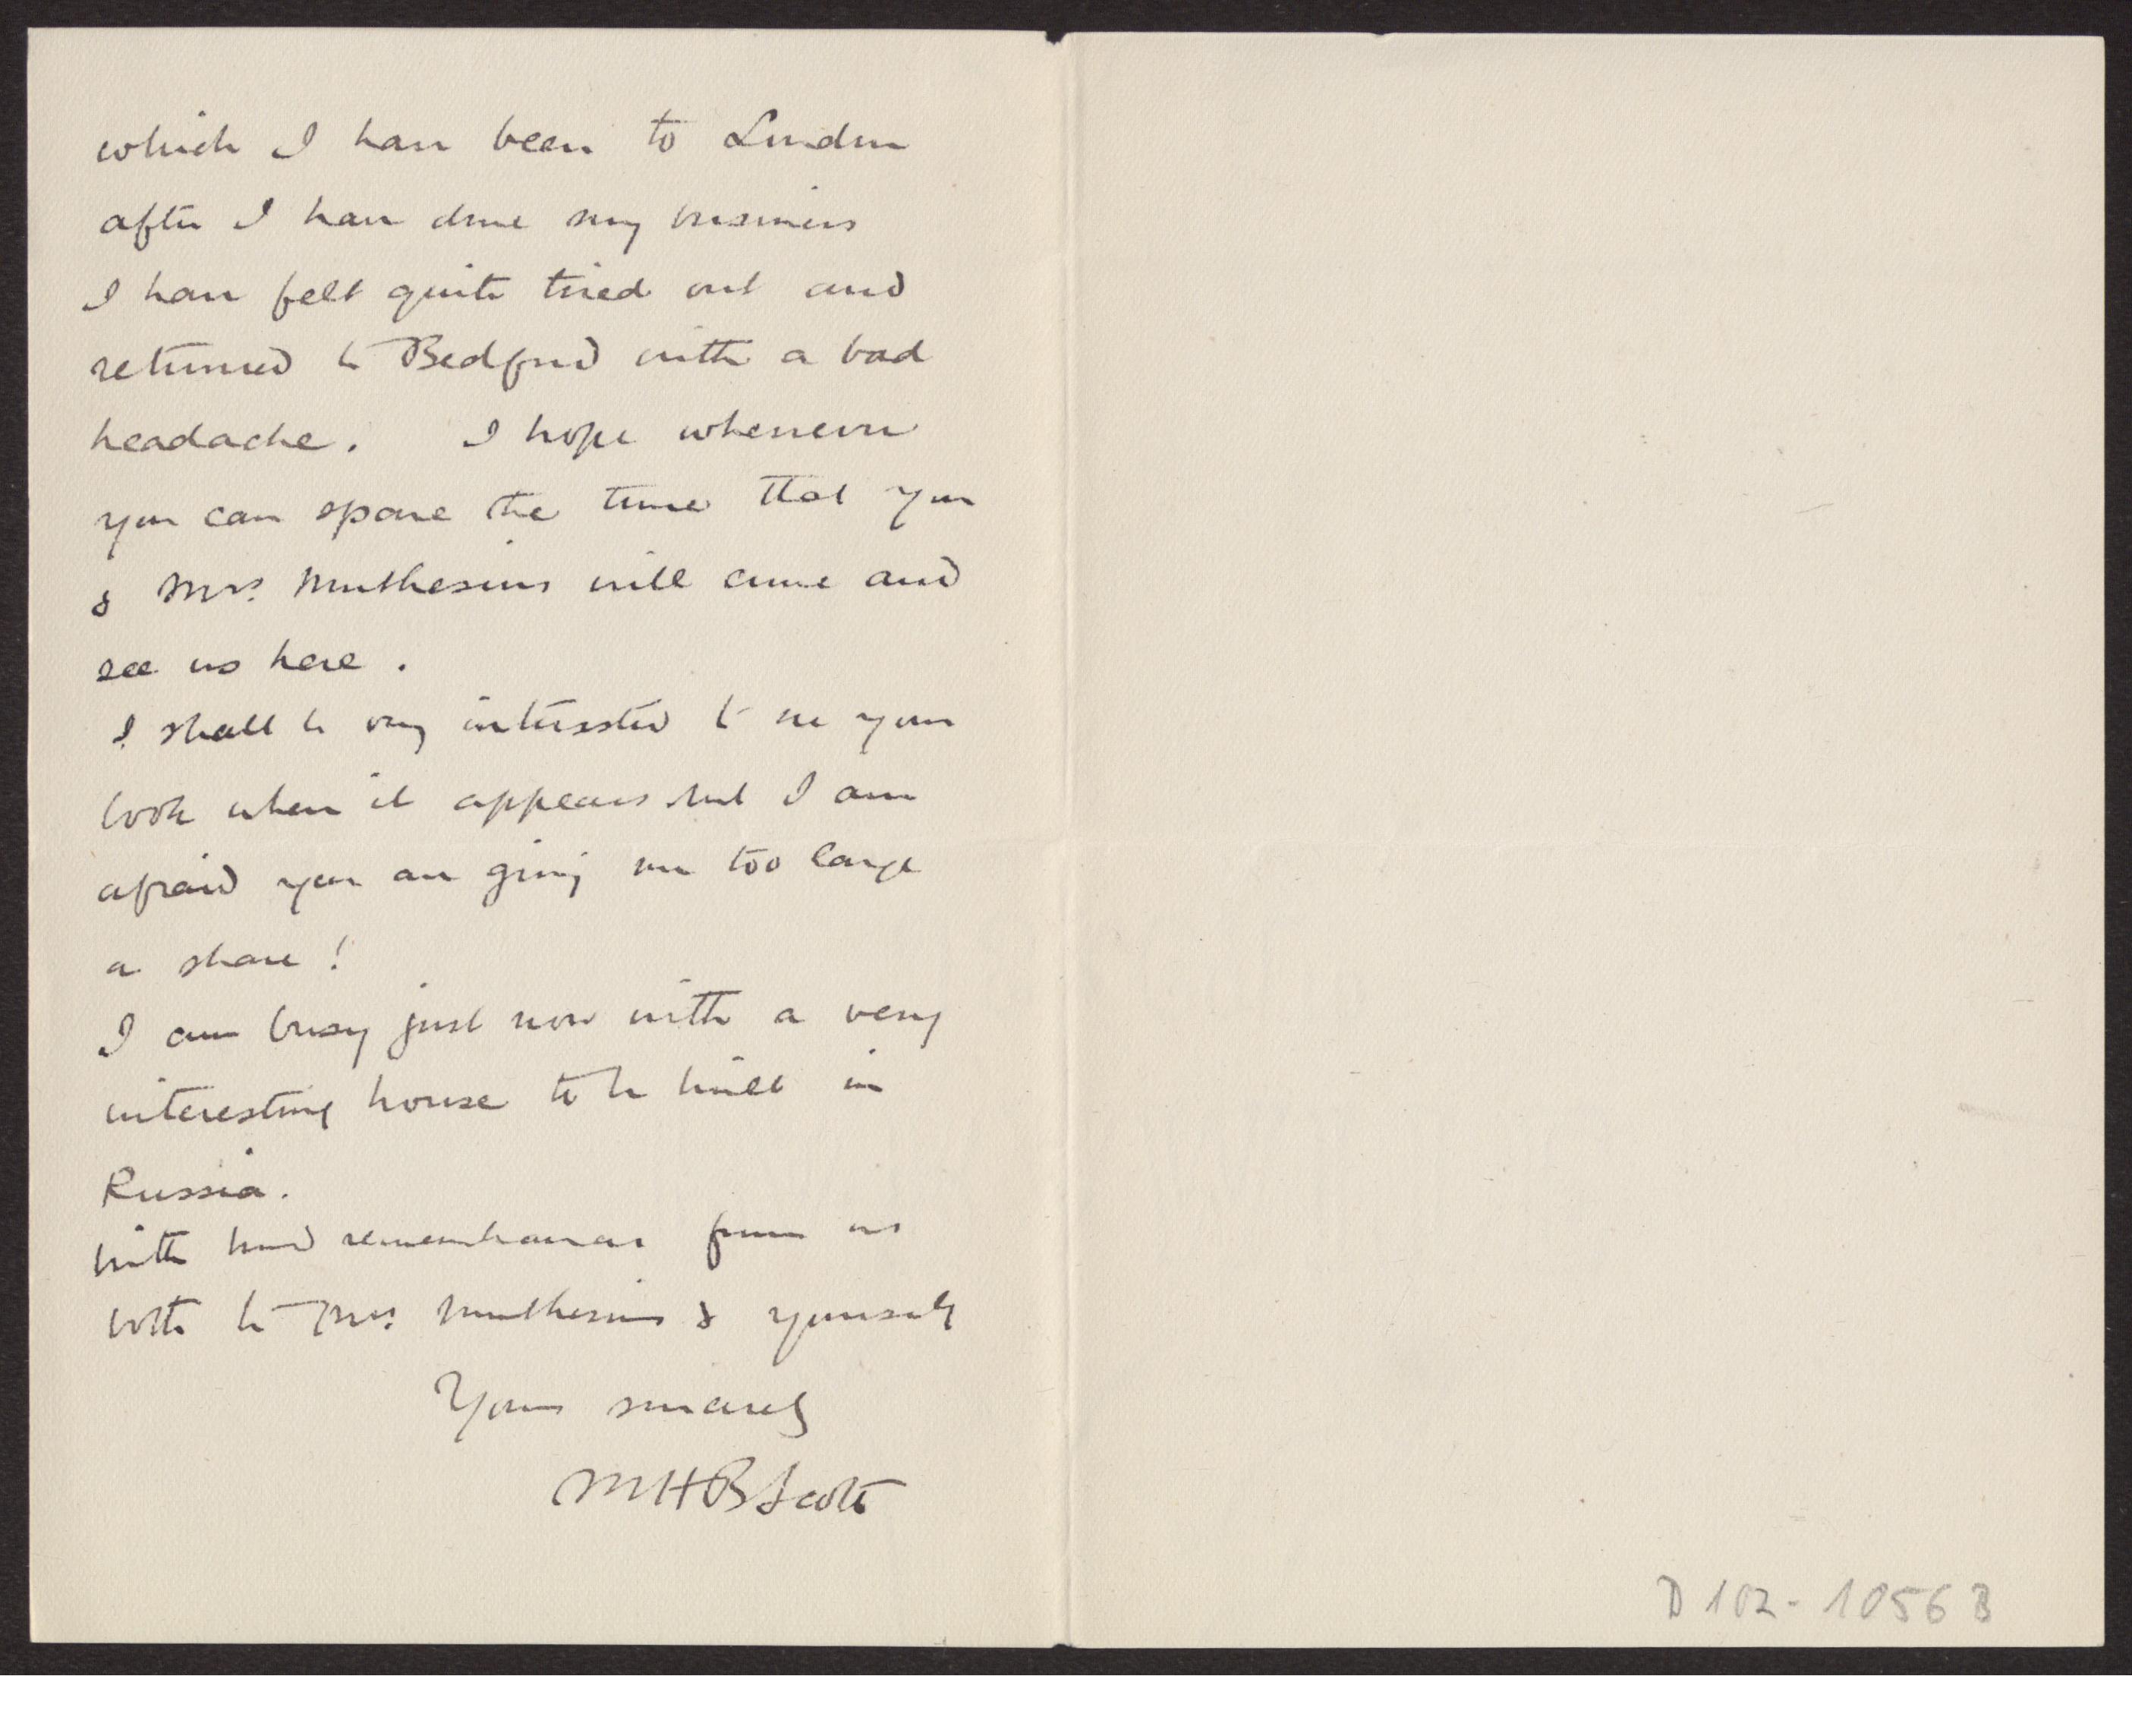 which I have been to London
after I have done my business
I have felt quite tired out and
returned to Bedford with a bad
headache. I hope whenever
you can spare the time that you
& Mrs. Muthesius will come and
see us here.
I shall be very interested to see your
book when it appears but I am
afraid you are giving me too large
a share!
I am busy just now with a very
interesting house to be built in
Russia.
with kind remembrances from us
both to Mrs. Muthesius & yourself
Yours sincerely
MHBScott
D 102-1056 B